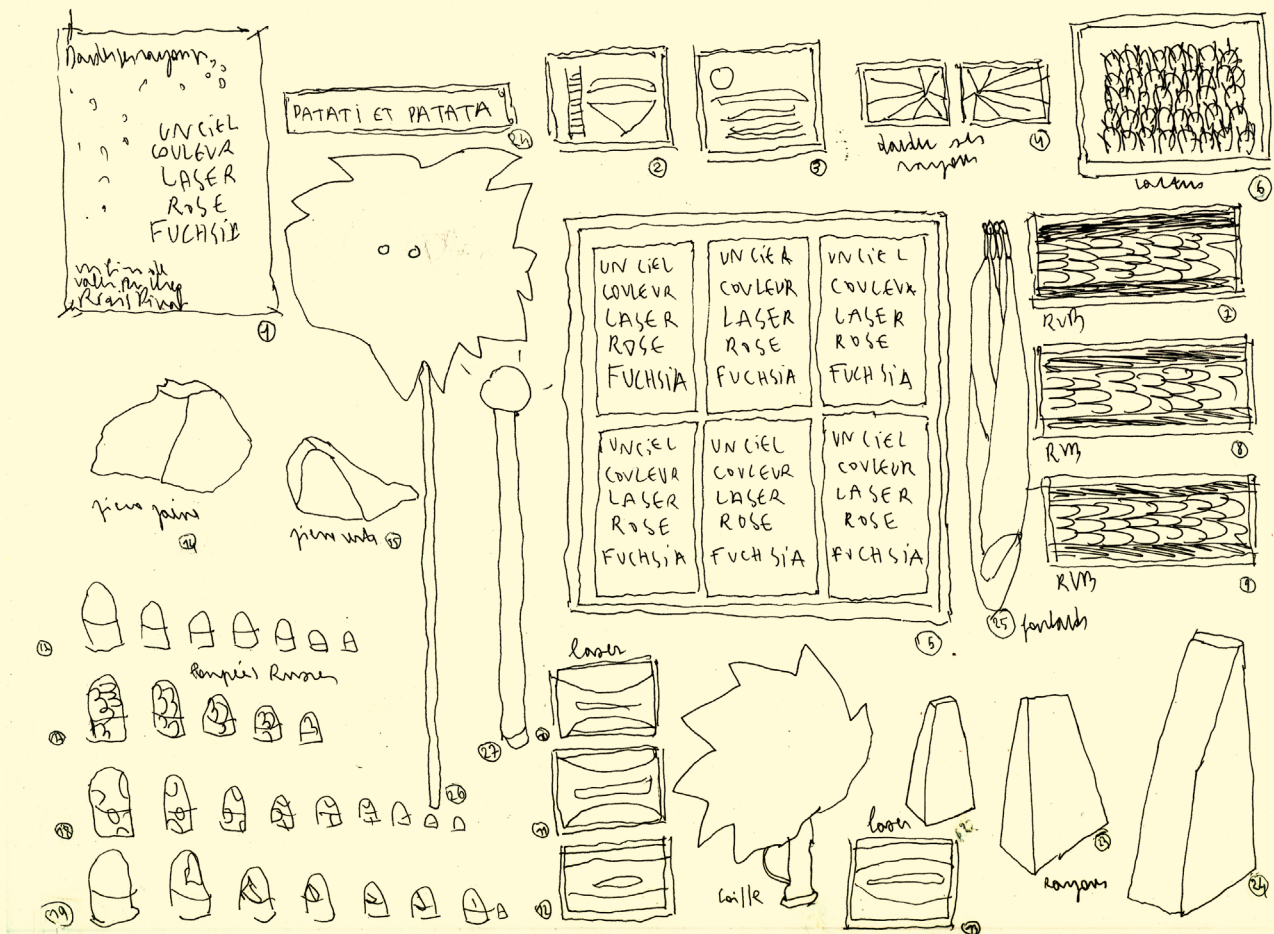 UN CIEL
COULEUR
LASER
ROSE
FUCHSIA
1
PATATI ET PATATA
2
3
darder ses
rayons
4
6
UN CIEL
COULEUR
LASER
ROSE
FUCHSIA
UN CIEL
COULEUR
LASER
ROSE
FUCHSIA
UN CIEL
COULEUR
LASER
ROSE
FUCHSIA
UN CIEL
COULEUR
LASER
ROSE
FUCHSIA
UN CIEL
COULEUR
LASER
ROSE
FUCHSIA
UN CIEL
COULEUR
LASER
ROSE
FUCHSIA
5
RVB
7
RVB
8
RVB
9
25 foulards
14
15
poupées Russes
26
27
laser
12
laser
rayons
24
19